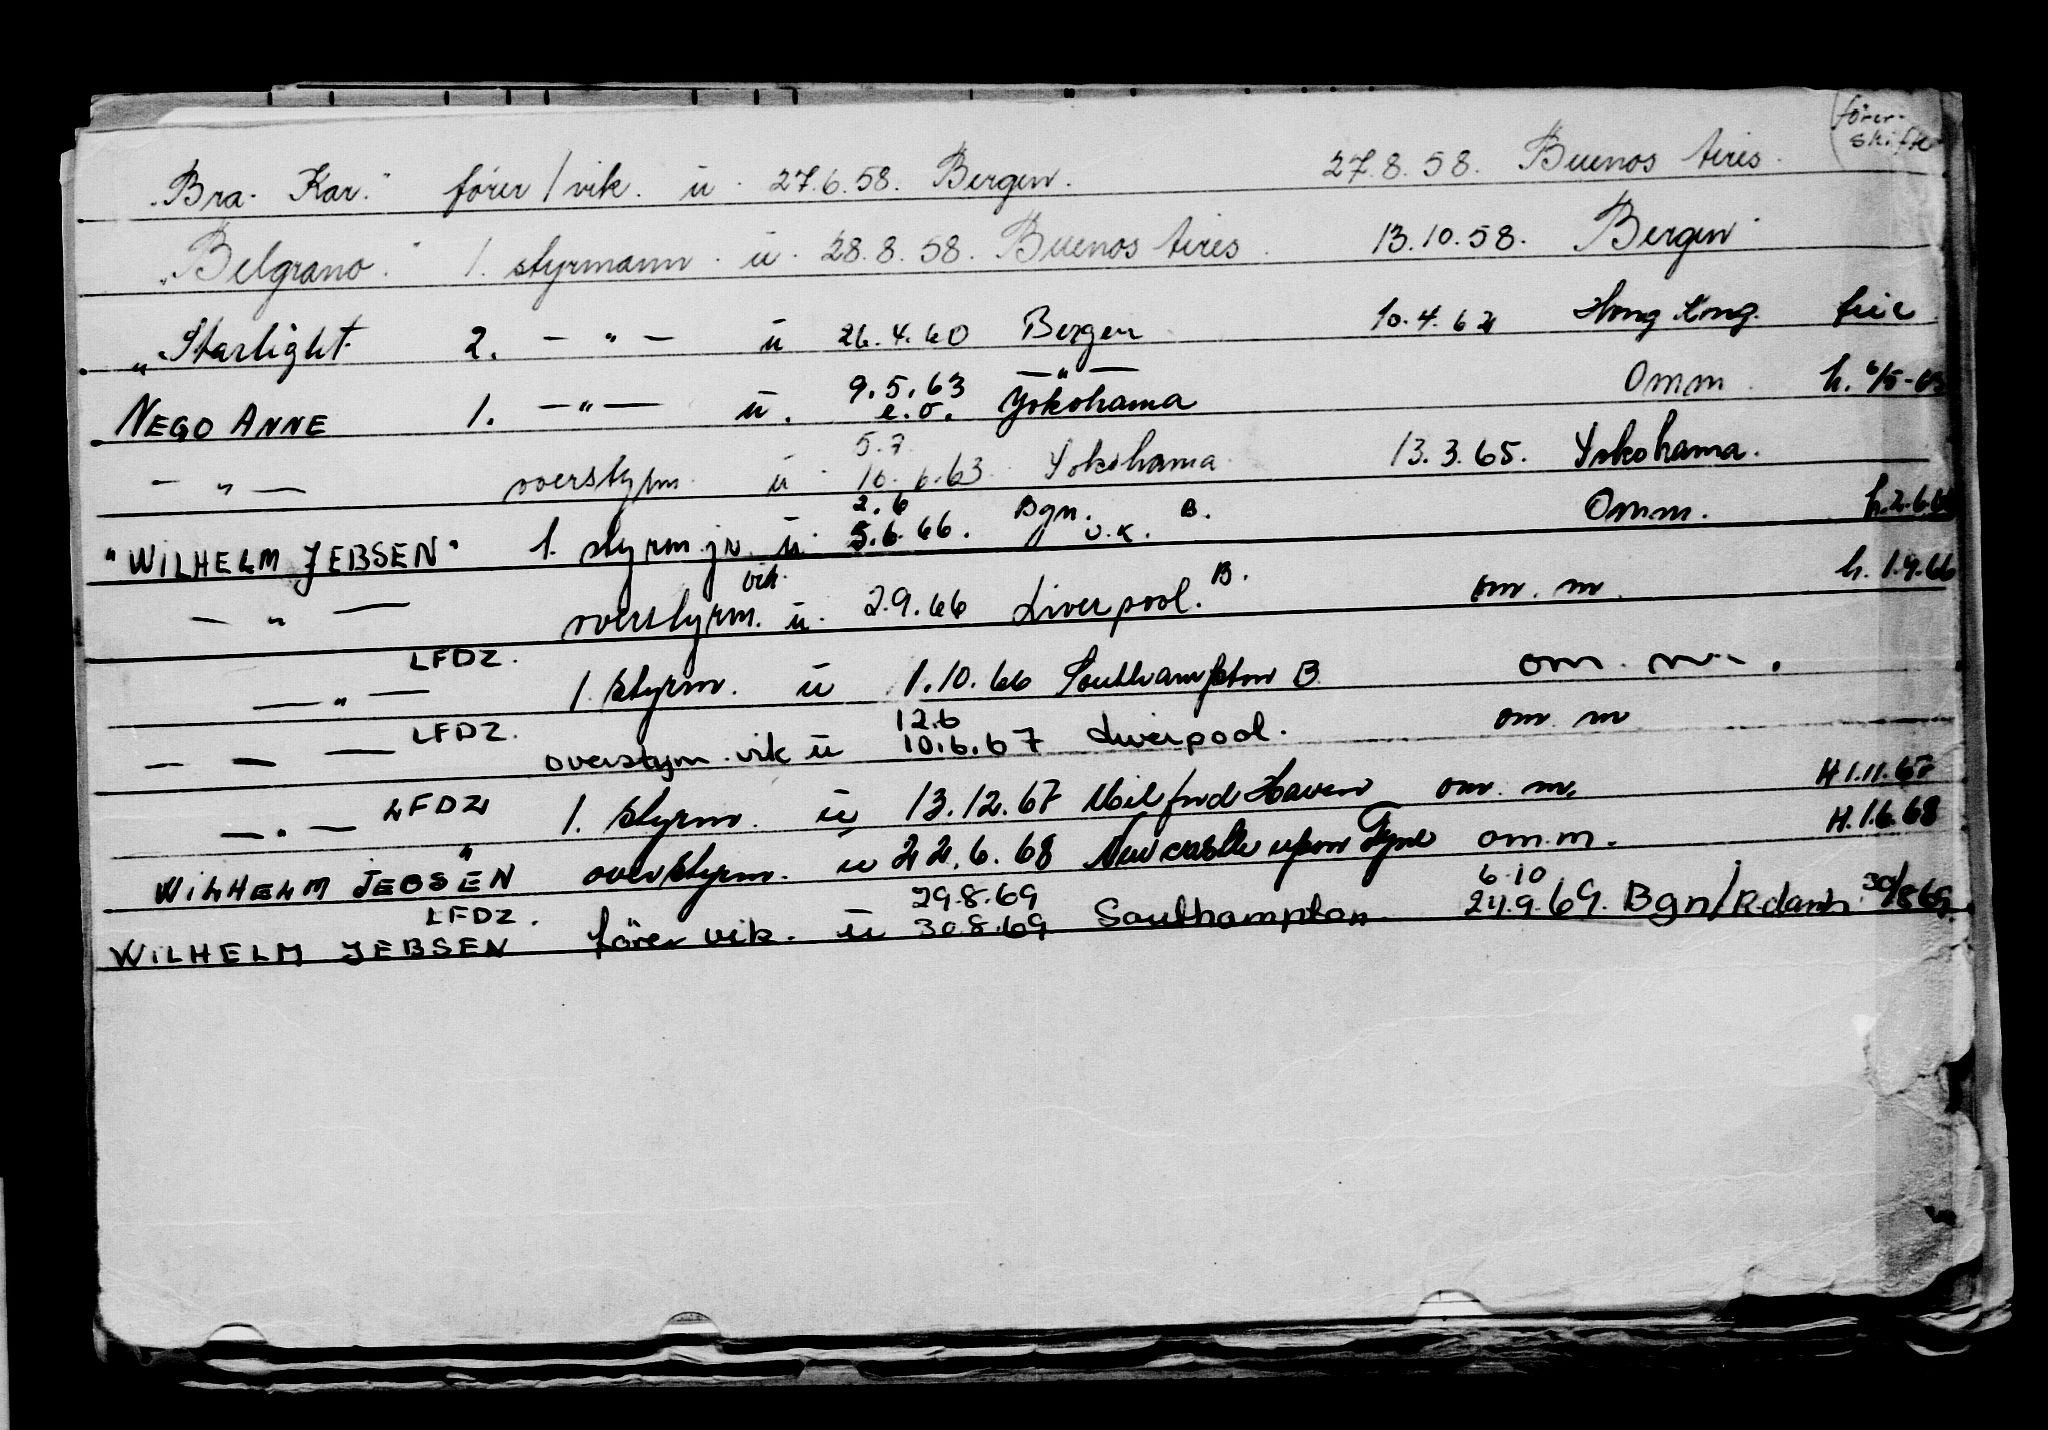 "Bra-Kar." fører/vik. u 27.6.58. Bergen. 27.8.58. Buenos Aires. fører-skifte
"Belgrano." 1. styrmann. u. 28.8.58. Buenos Aires. 13.10.58. Bergen
"Starlight 2. — " — u 26.4.60 Bergen 10.4.62 Hong Kong
NEGO ANNE 1. — " — u. 9.5.63 e.o. — " — Yokohama Omm. h. 6/5-63
— " — overstyrm. u 5.7. 10.6.63. Yokohama 13.3.65. Yokohama.
"WILHELM JEBSEN" 1. styrm. jr. u. 2.6 5.6.66. Bgn. B. U.K. Omm. h. 2.6.66
— " — overstyrm. vik. u. 2.9.66 Liverpool. B. om. m. h. 1.9.66
— " — LFDZ. 1. styrm. u 1.10.66 Southampton B. om. m.
— — — LFDZ. overstym. vik u 12.6 10.6.67 Liverpool. om m
— " — LFDZ 1. styrm. u 13.12.67 Milford Haven om. m. H 1.11.67
WILHELM JEBSEN " overstyrm. u 22.6.68 Newcastle upon Tyne om.m. H. 1.6.68
WILHELM JEBSEN LFDZ. fører vik. u 29.8.69 30.8.69 Southampton 6.10 24.9.69. Bgn/R.dam h 30/8 69.